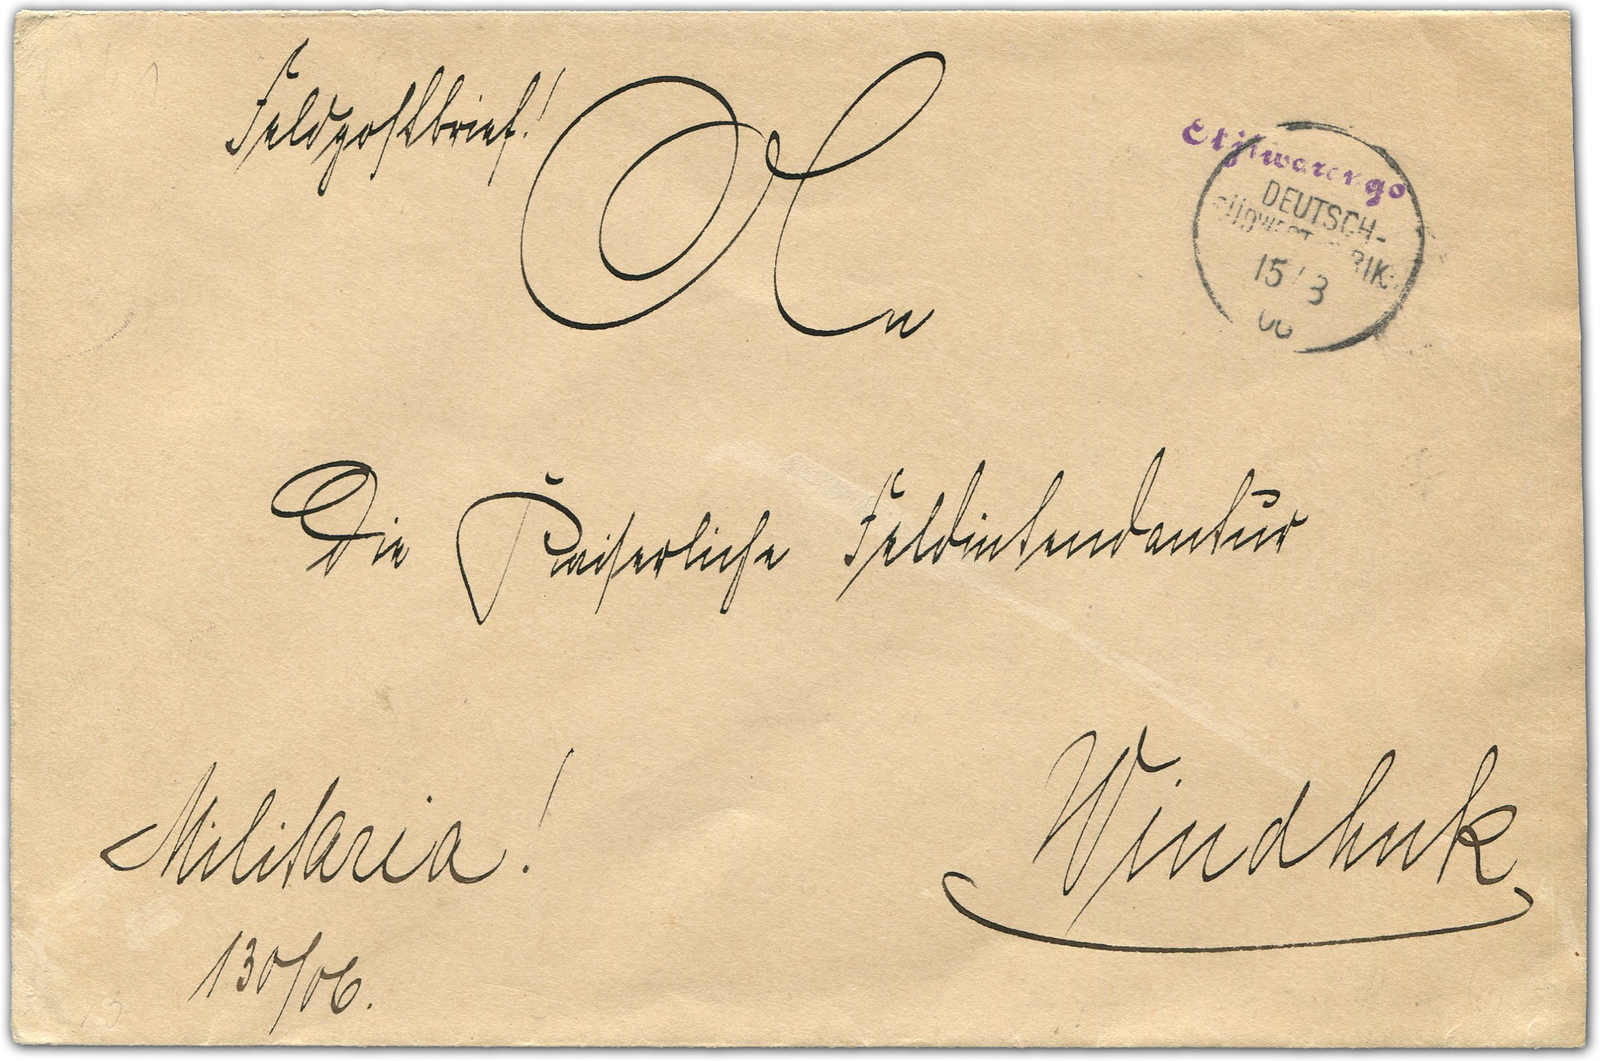 Feldpostbrief!
An
Otjiwarongo
DEUTSCH-
SÜDWESTAFRIKA
15/3
06
Die Kaiserliche Feldintendantur
Windhuk
Militaria!
130/06.